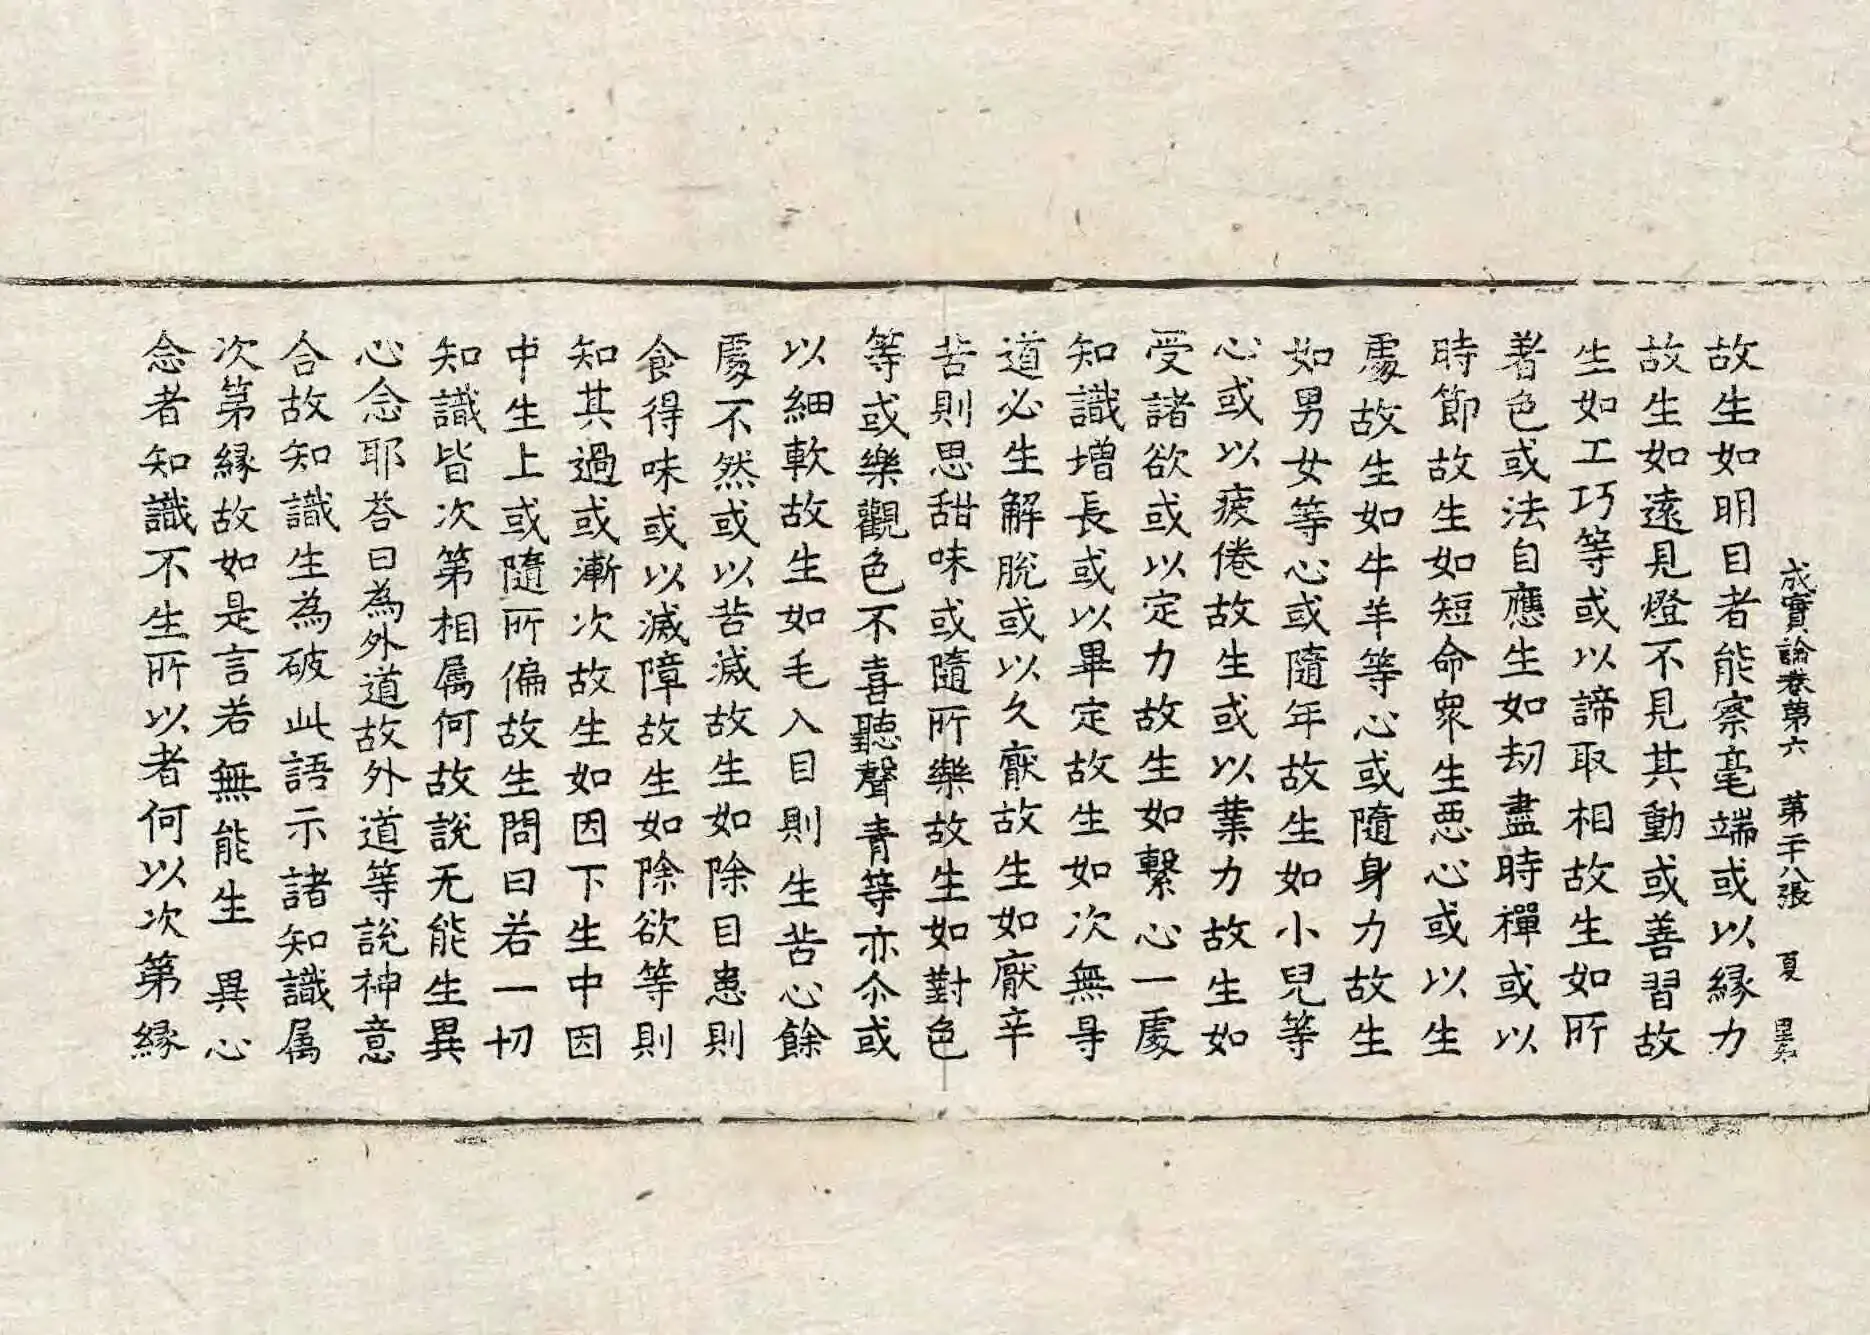 成實論卷第六 第二十八張 夏
故生如明目者能察毫端或以縁力
故生如遠見燈不見其動或善習故
生如工巧等或以諦取相故生如所
著色或法自應生如劫盡時禪或以
時節故生如短命衆生惡心或以生
處故生如牛羊等心或隨身力故生
如男女等心或隨年故生如小兒等
心或以疲倦故生或以業力故生如
受諸欲或以定力故生如繫心一處
知識增長或以畢定故生如次無㝵
道必生解脫或以久厭故生如厭辛
苦則思甜味或隨所樂故生如對色
等或樂觀色不喜聽聲青等亦尒或
以細軟故生如毛入目則生苦心餘
處不然或以苦滅故生如除目患則
食得味或以滅障故生如除欲等則
知其過或漸次故生如因下生中因
中生上或隨所偏故生問曰若一切
知識皆次第相属何故說无能生異
心念耶荅曰為外道故外道等說神意
合故知識生為破此語示諸知識属
次第縁故如是言若無能生 異心
念者知識不生所以者何以次第縁